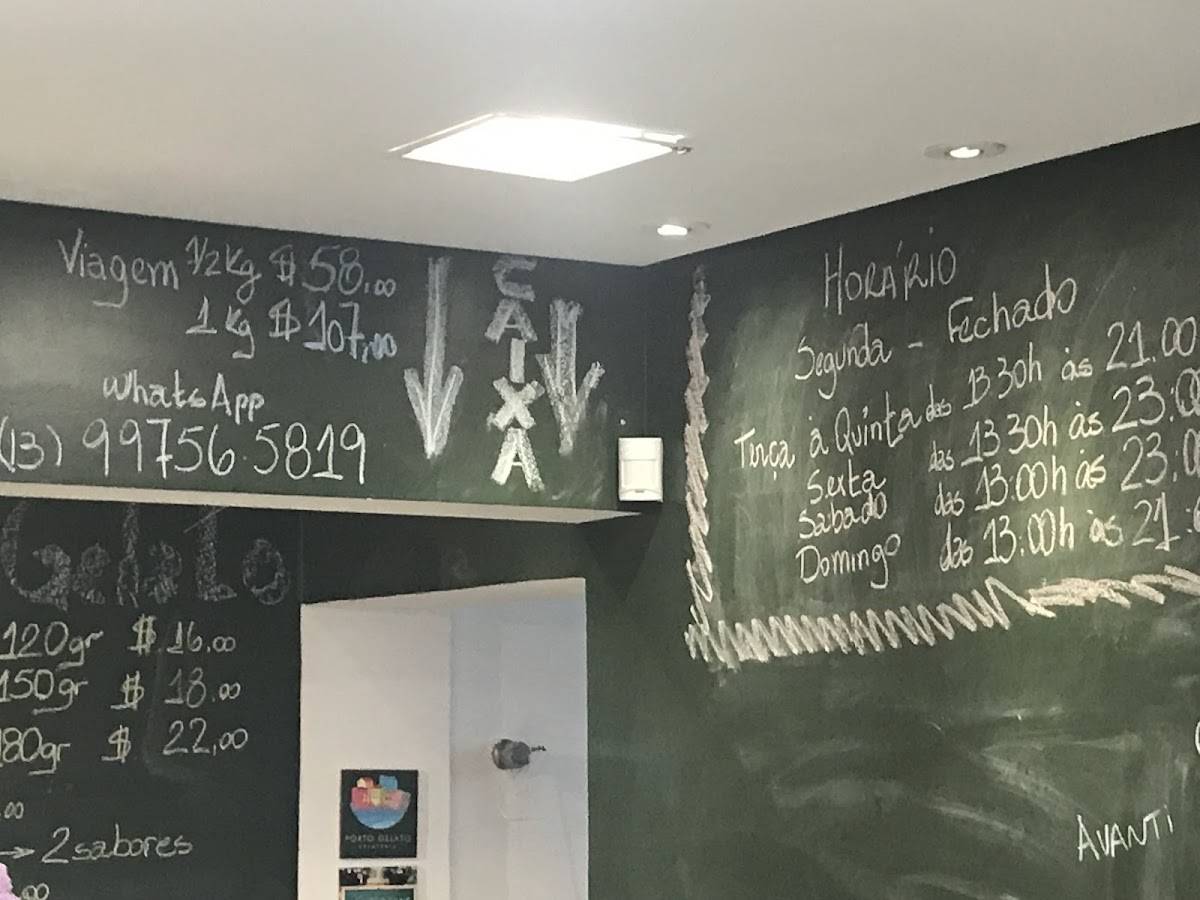 Viagem 1/2 Kg $ 58,00
1 kg $ 107,00
WhatsApp
(13) 99756.5819
CAIXA
HORÁRIO
Segunda - Fechado
Terça à Quinta das 13 30h às 21.00
Sexta das 13 30h às 23:0
Sabado das 13:00h às 23:0
Domingo das 13.00h às 21:
Gelato
120gr $ 16.00
150gr $ 18.00
180gr $ 22,00
.00
→ 2 sabores
00
PORTO GELATO
AVANTI